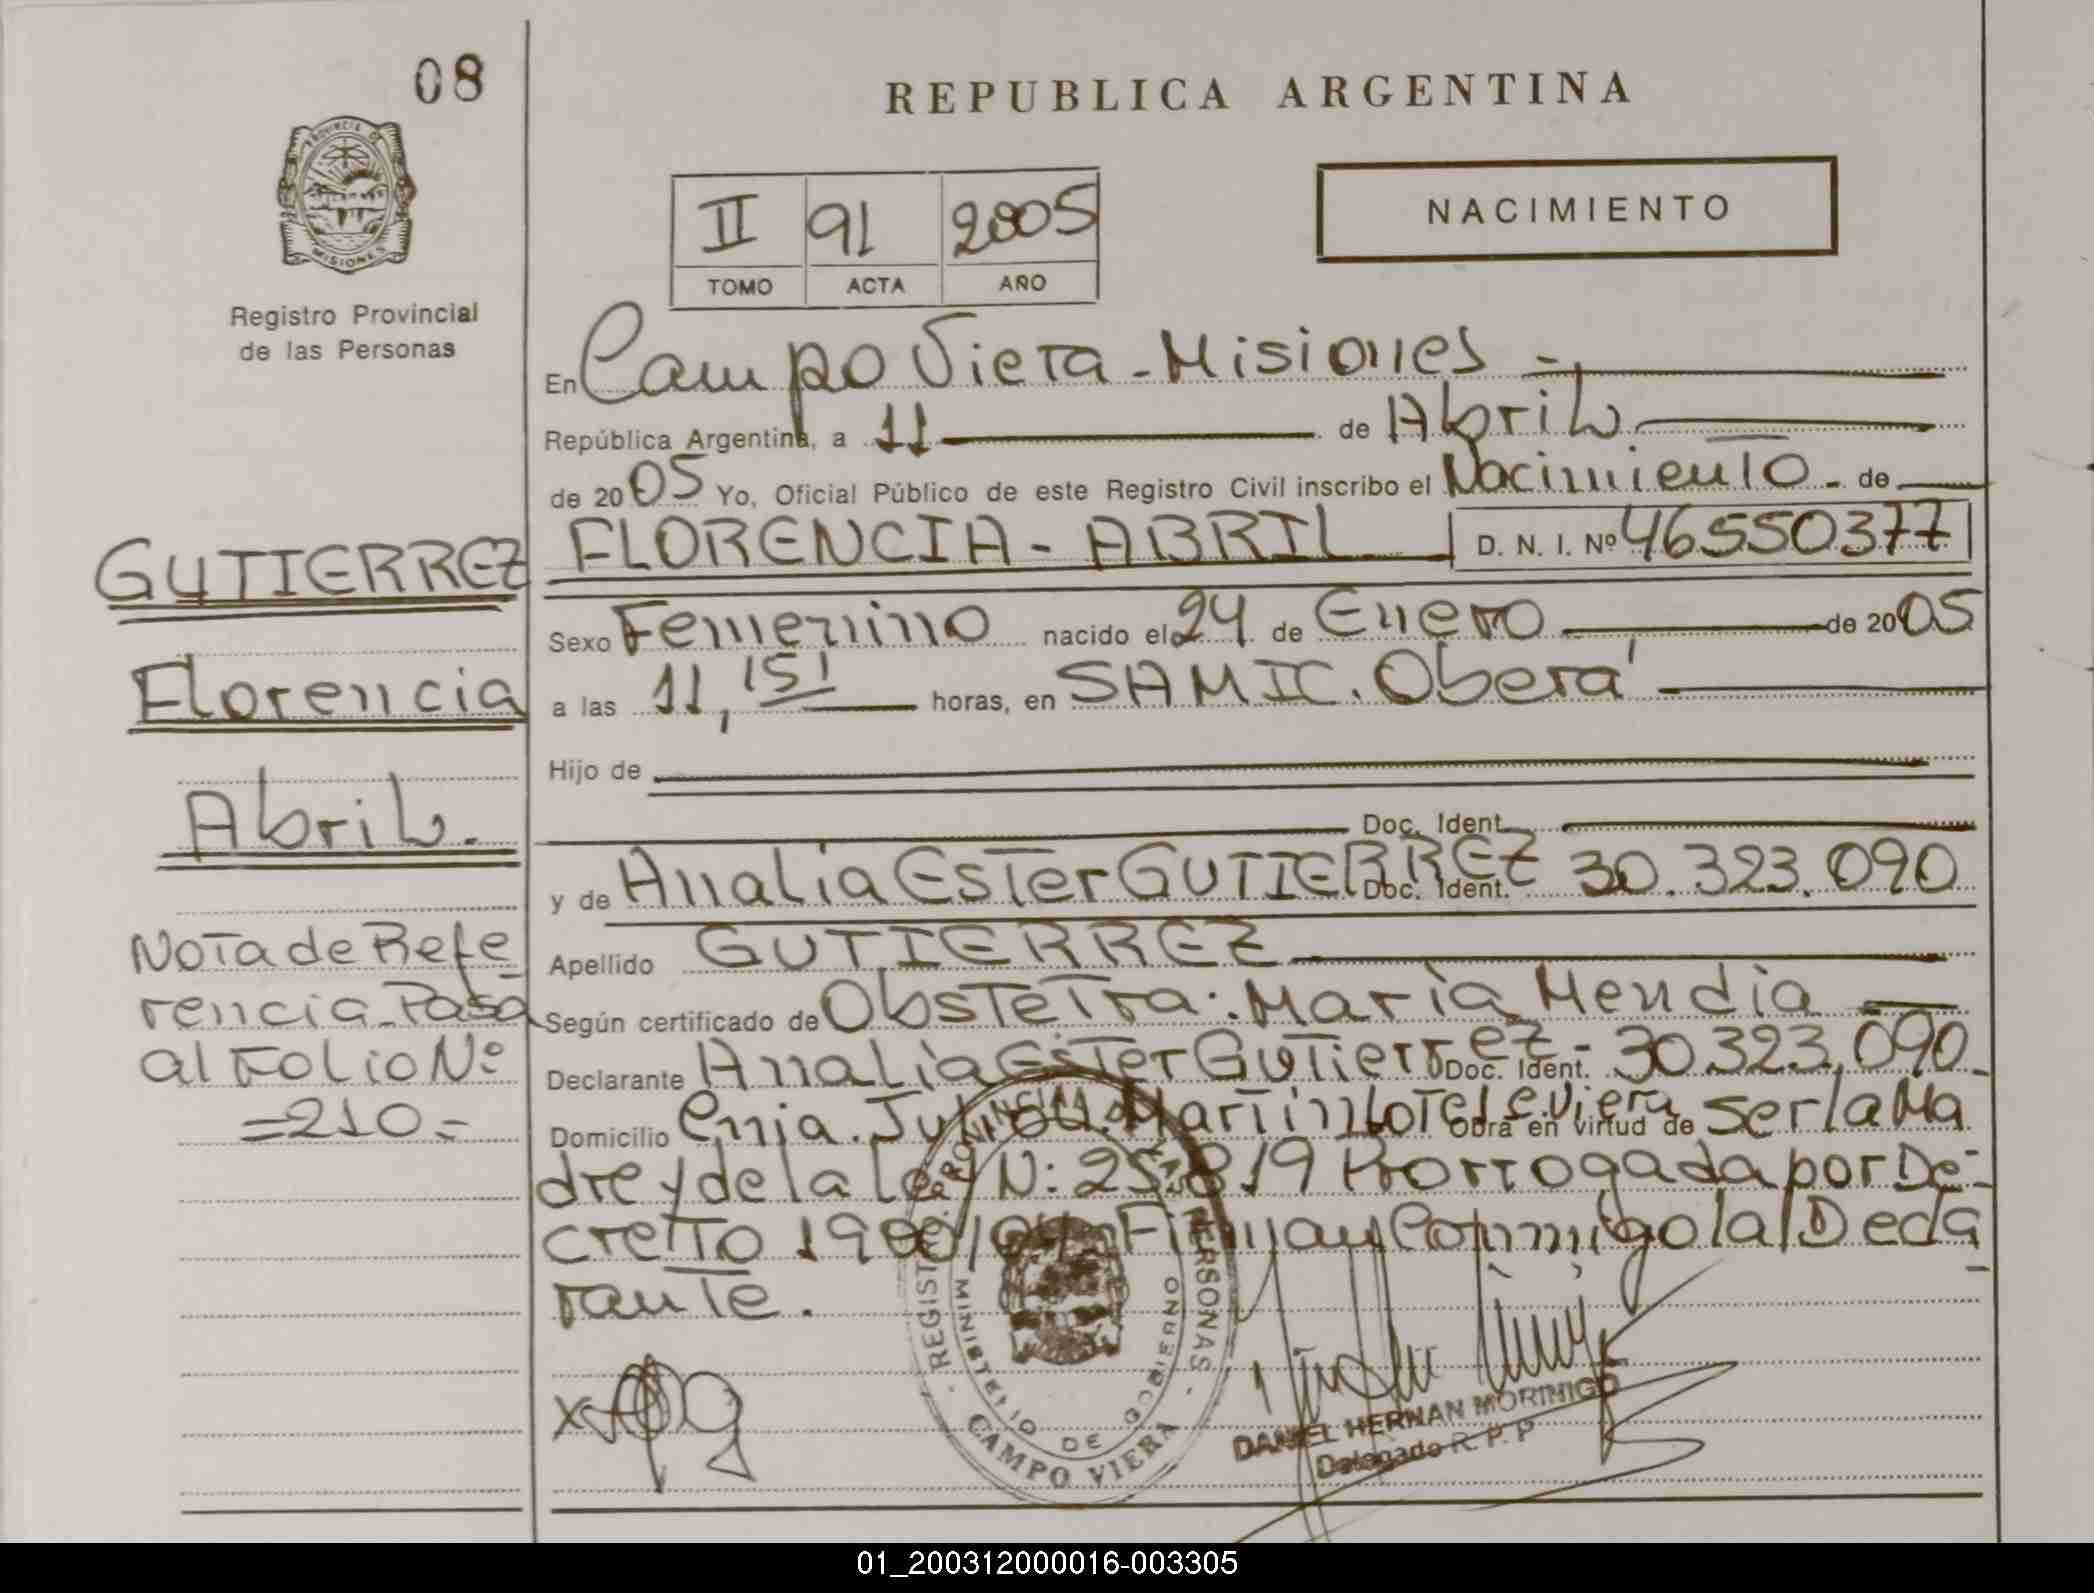 08
REPUBLICA ARGENTINA
PROVINCIA DE
MISIONES
Registro Provincial
de las Personas
II 91 2005
TOMO ACTA AÑO
NACIMIENTO
En Campo Viera - Misiones -
República Argentina, a 11 de Abril
de 2005 Yo, Oficial Público de este Registro Civil inscribo el Nacimiento - de
FLORENCIA - ABRIL D. N. I. Nº 46550377
Sexo Femenino nacido el 24 de Enero de 2005
a las 11,15' horas, en SAMIC. Oberá
Hijo de
Doc. Ident.
y de Analía Ester GUTIERREZ Doc. Ident. 30.323.090
Apellido GUTIERREZ
Según certificado de Obstetra: María Mendia
Declarante Analía Ester Gutierrez - Doc. Ident. 30.323.090
Domicilio Cnia. Martin C. Viera Obra en virtud de ser la Ma
dre y de la Ley N: 25.819 Prorrogada por De-
cretto Firman Conmigo la Decla
rante.
GUTIERREZ
Florencia
Abril.
Nota de Refe
rencia - Pasa
al Folio Nº
=210=
REGISTRO PROVINCIAL DE LAS PERSONAS
MINISTERIO DE GOBIERNO
CAMPO VIERA
DANIEL HERNAN MORINIGO
Delegado R. P. P
01_200312000016-003305